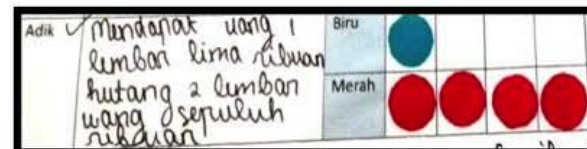 Adik ✓ Mendapat uang 1
lembar lima ribuan
hutang 2 lembar
uang sepuluh
ribuan
Biru
Merah